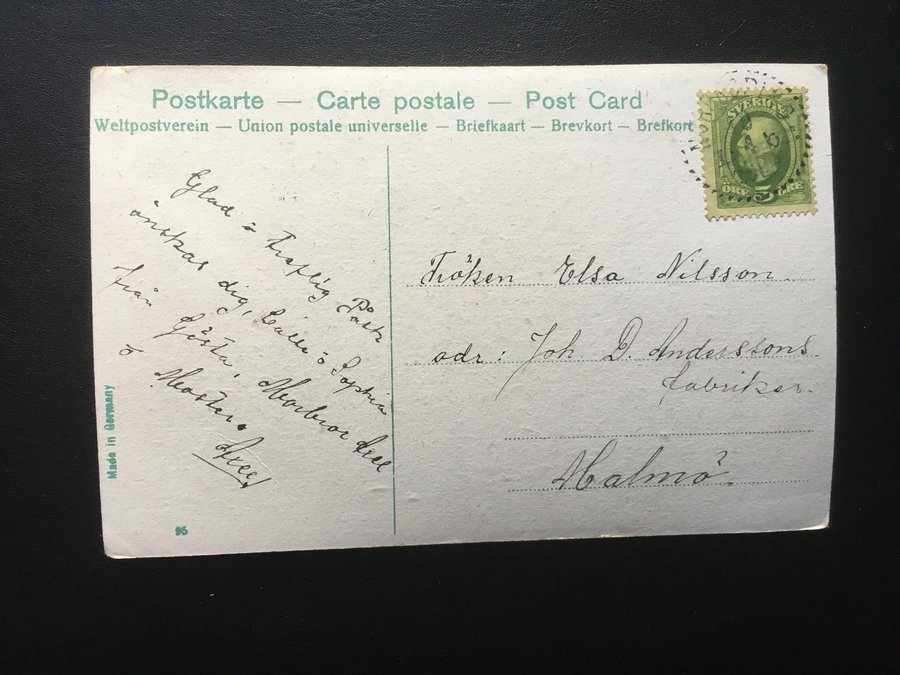 Postkarte — Carte postale — Post Card
Weltpostverein — Union postale universelle — Briefkaart — Brevkort — Brefkort
SVERIGE
ÖRE 5 ÖRE
Glad o Treflig Påsk
önskas dig, Calle o Sophia
från Gösta, Morbror Axel
o Moster.
Axel
Fröken Elsa Nilsson.
adr: Joh. D. Anderssons
fabriker.
Malmö.
Made in Germany
95